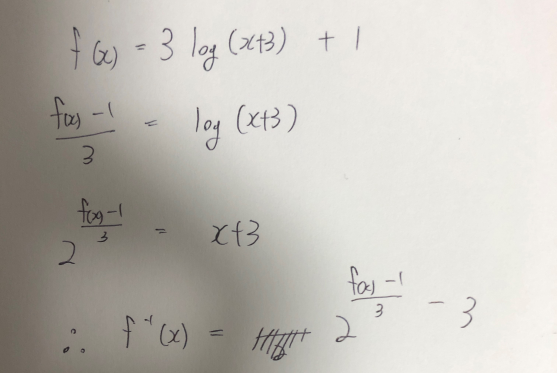 f(x) = 3 log (x+3) + 1
(f(x) - 1)/3 = log (x+3)
2^((f(x) - 1)/3) = x+3
∴ f⁻¹(x) = 2^((f(x) - 1)/3) - 3